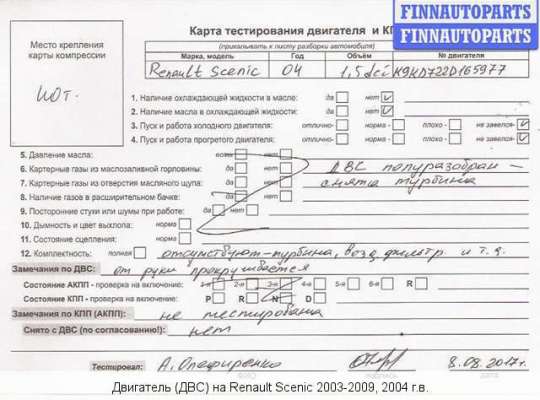 FINNAUTOPARTS
FINNAUTOPARTS
Карта тестирования двигателя и КП
(прикалывать к листу разборки автомобиля)
Место крепления карты компрессии
Марка, модель Год Объём № двигателя
Renault Scenic 04 1,5 dci K9KD722D165977
нот.
1. Наличие охлаждающей жидкости в масле: да нет
2. Наличие масла в охлаждающей жидкости: да нет
3. Пуск и работа холодного двигателя: отлично- норма - плохо - не завелся-
4. Пуск и работа прогретого двигателя: отлично- норма - плохо - не завелся-
5. Давление масла: есть нет
6. Картерные газы из маслозаливной горловины: да нет ДВС полуразобран -
7. Картерные газы из отверстия масляного щупа: да нет снята турбина
8. Наличие газов в расширительном бачке: да нет
9. Посторонние стуки или шумы при работе: да нет
10. Дымность и цвет выхлопа: норма
11. Состояние сцепления: норма
12. Комплектность: полная отсутствуют-турбина, возд. фильтр и т.д.
Замечания по ДВС: от руки прокручивается
Состояние АКПП - проверка на включение: 1-я 2-я 3-я 4-я 5-я 6-я R
Состояние КПП - проверка на включение: P R N D
Замечания по КПП (АКПП): не тестирована
Снято с ДВС (по согласованию!): нет
Тестировал: А. Олефиренко 8.08.2017г.
ФИО подпись дата
Двигатель (ДВС) на Renault Scenic 2003-2009, 2004 г.в.